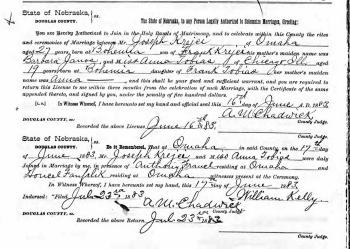 State of Nebraska,
DOUGLAS COUNTY. ss. The State of Nebraska, to any Person Legally Authorized to Solemnize Marriages, Greeting:
You are Hereby Authorized to Join in the Holy Bonds of Matrimony, and to celebrate within this County the rites
and ceremonies of Marriage between Mr. Joseph Krejce of Omaha
aged 27 years, born at Bohemia son of Frank Krejce his mother's maiden name was
Barbara Janos and Miss Anna Tobias of Chicago Ills aged
19 years born at Bohemia daughter of Frank Tobias her mother's maiden
name was Anna and this shall be your good and sufficient warrant, and you are required
to return this License to me within three months from the celebration of such Marriage, with the Certificate of the same
appended thereto, and signed by you, under the penalty of five hundred dollars.
In Witness Whereof, I have hereunto set my hand and official seal this 16th day of June A.D. 1883
A. M. Chadwick
County Judge.
Recorded the above License June 16th 83.
County Judge.
State of Nebraska,
DOUGLAS COUNTY. ss. Be it Remembered, That at Omaha in said County on the 17th
day of June 1883, Mr. Joseph Krejce and Miss Anna Tobias were duly
joined in Marriage by me, in presence of Anthony residing at Omaha and
residing at Omaha witnesses present at the Ceremony.
In Witness Whereof, I have hereunto set my hand, this 17 day of June 1883.
Indorsed: Filed July 23rd 1883 William Kelly
A. M. Chadwick
DOUGLAS COUNTY. ss. County Judge.
Recorded the above Return July 23rd 83
County Judge.